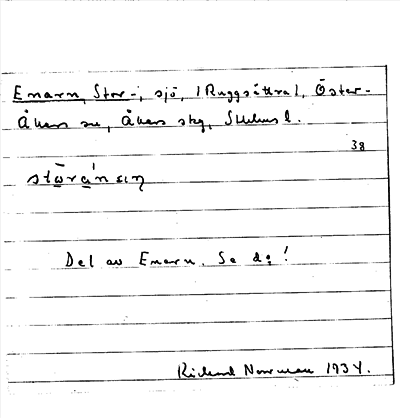 Emarn, Stor-, sjö, (Ruggsättra), Öster-
Åkers sn, Åkers skg, Sthlms l.
38
Del av Emarn. Se d:o!
Rickard Norrman 1934.